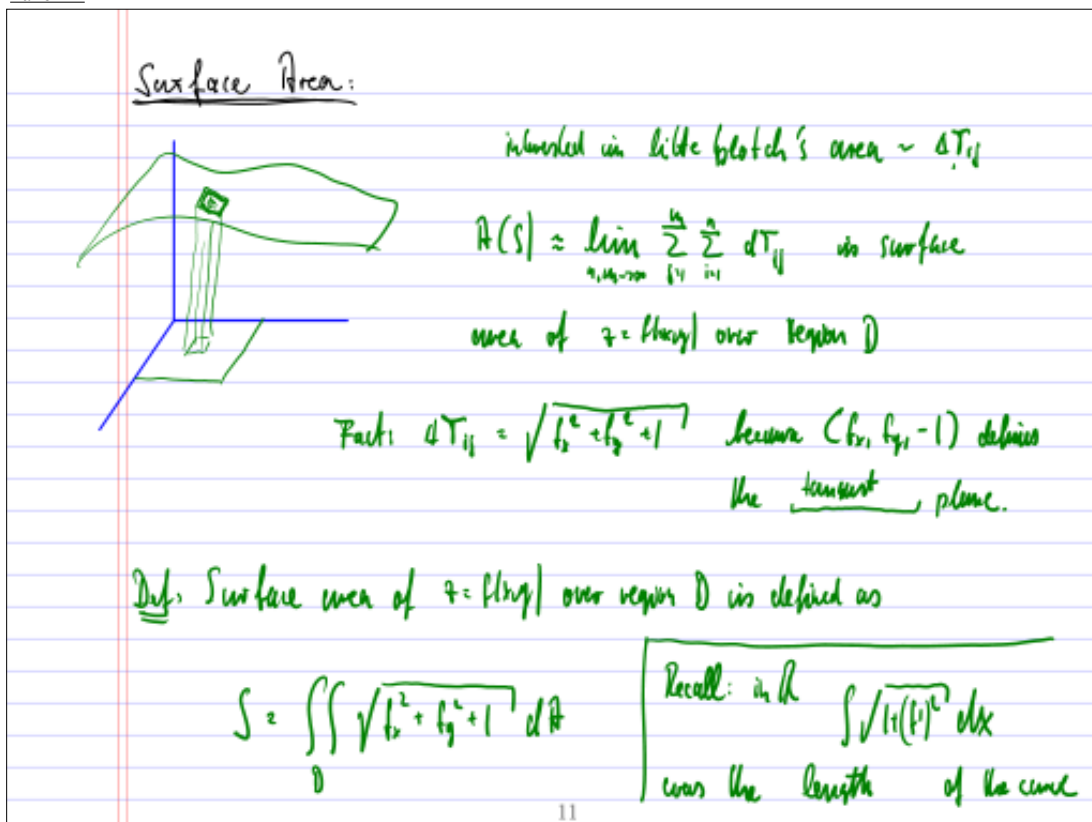 Surface Area:
interested in little blotch's area ~ ΔT_ij
A(S) ≈ lim_{n,m→∞} Σ_{j=1}^{m} Σ_{i=1}^{n} dT_ij is surface
area of z = f(x,y) over region D
Fact: ΔT_ij = √(f_x² + f_y² + 1) because (f_x, f_y, -1) defines
the tangent plane.
Def: Surface area of z = f(x,y) over region D is defined as
S = ∬_D √(f_x² + f_y² + 1) dA
Recall: in R
∫ √(1+(f')²) dx
was the length of the curve
11